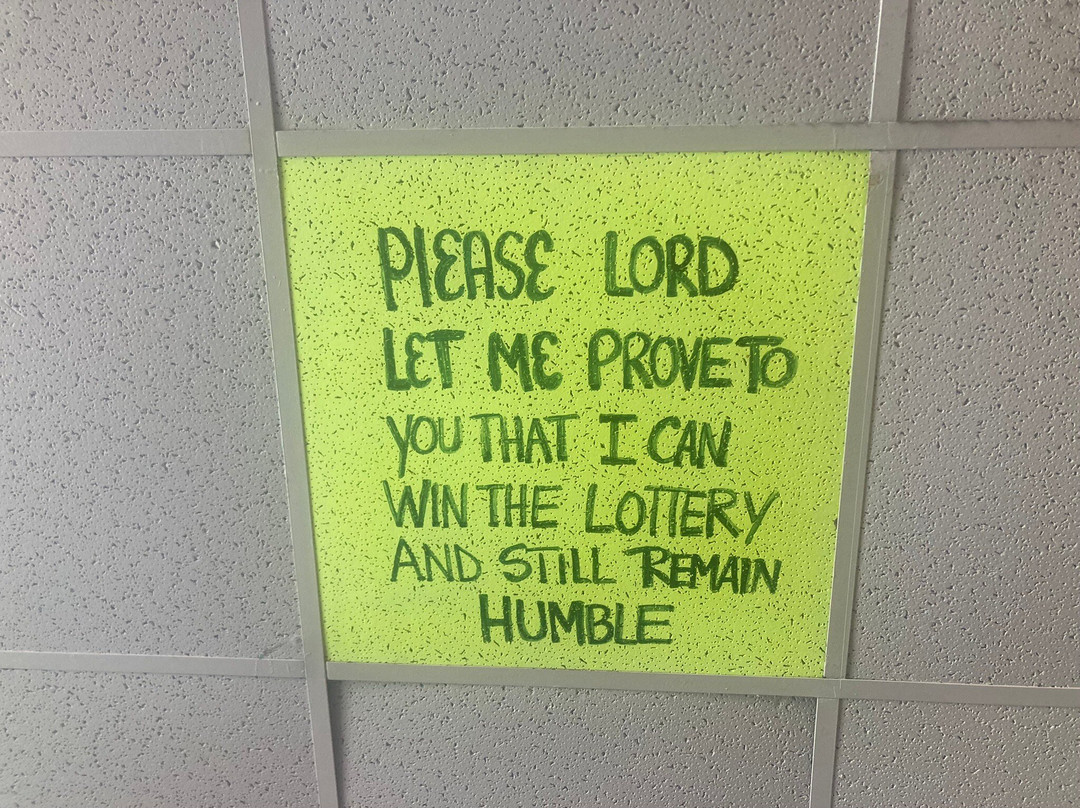 PLEASE LORD
LET ME PROVE TO
YOU THAT I CAN
WIN THE LOTTERY
AND STILL REMAIN
HUMBLE